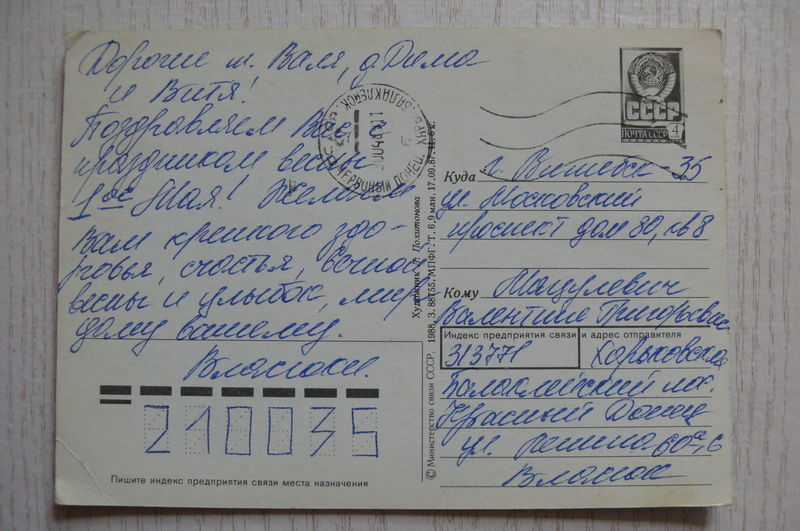 Дорогие т. Валя, д. Дима
и Витя!
Поздравляем Вас с
праздником весны
1ое Мая! Желаем
Вам крепкого здо-
ровья, счастья, вечной
весны и улыбок, мира
дому вашему.
Власюки.
210035
Пишите индекс предприятия связи места назначения
Художник Л. Похитонова
© Министерство связи СССР. 1988. З. 88155. МПФГ. Т. 6,9 млн. 17.09.87. Ц. 6 к.
СССР
ПОЧТА СССР
4
Куда г. Витебск-35
ул. Московский
проспект дом 80, кв 8
Кому Мацулевич
Валентине Григорьевне
Индекс предприятия связи и адрес отправителя
313771 Харьковская
Балаклейский
Красный Донец
ул. Ленина 60
Власюк